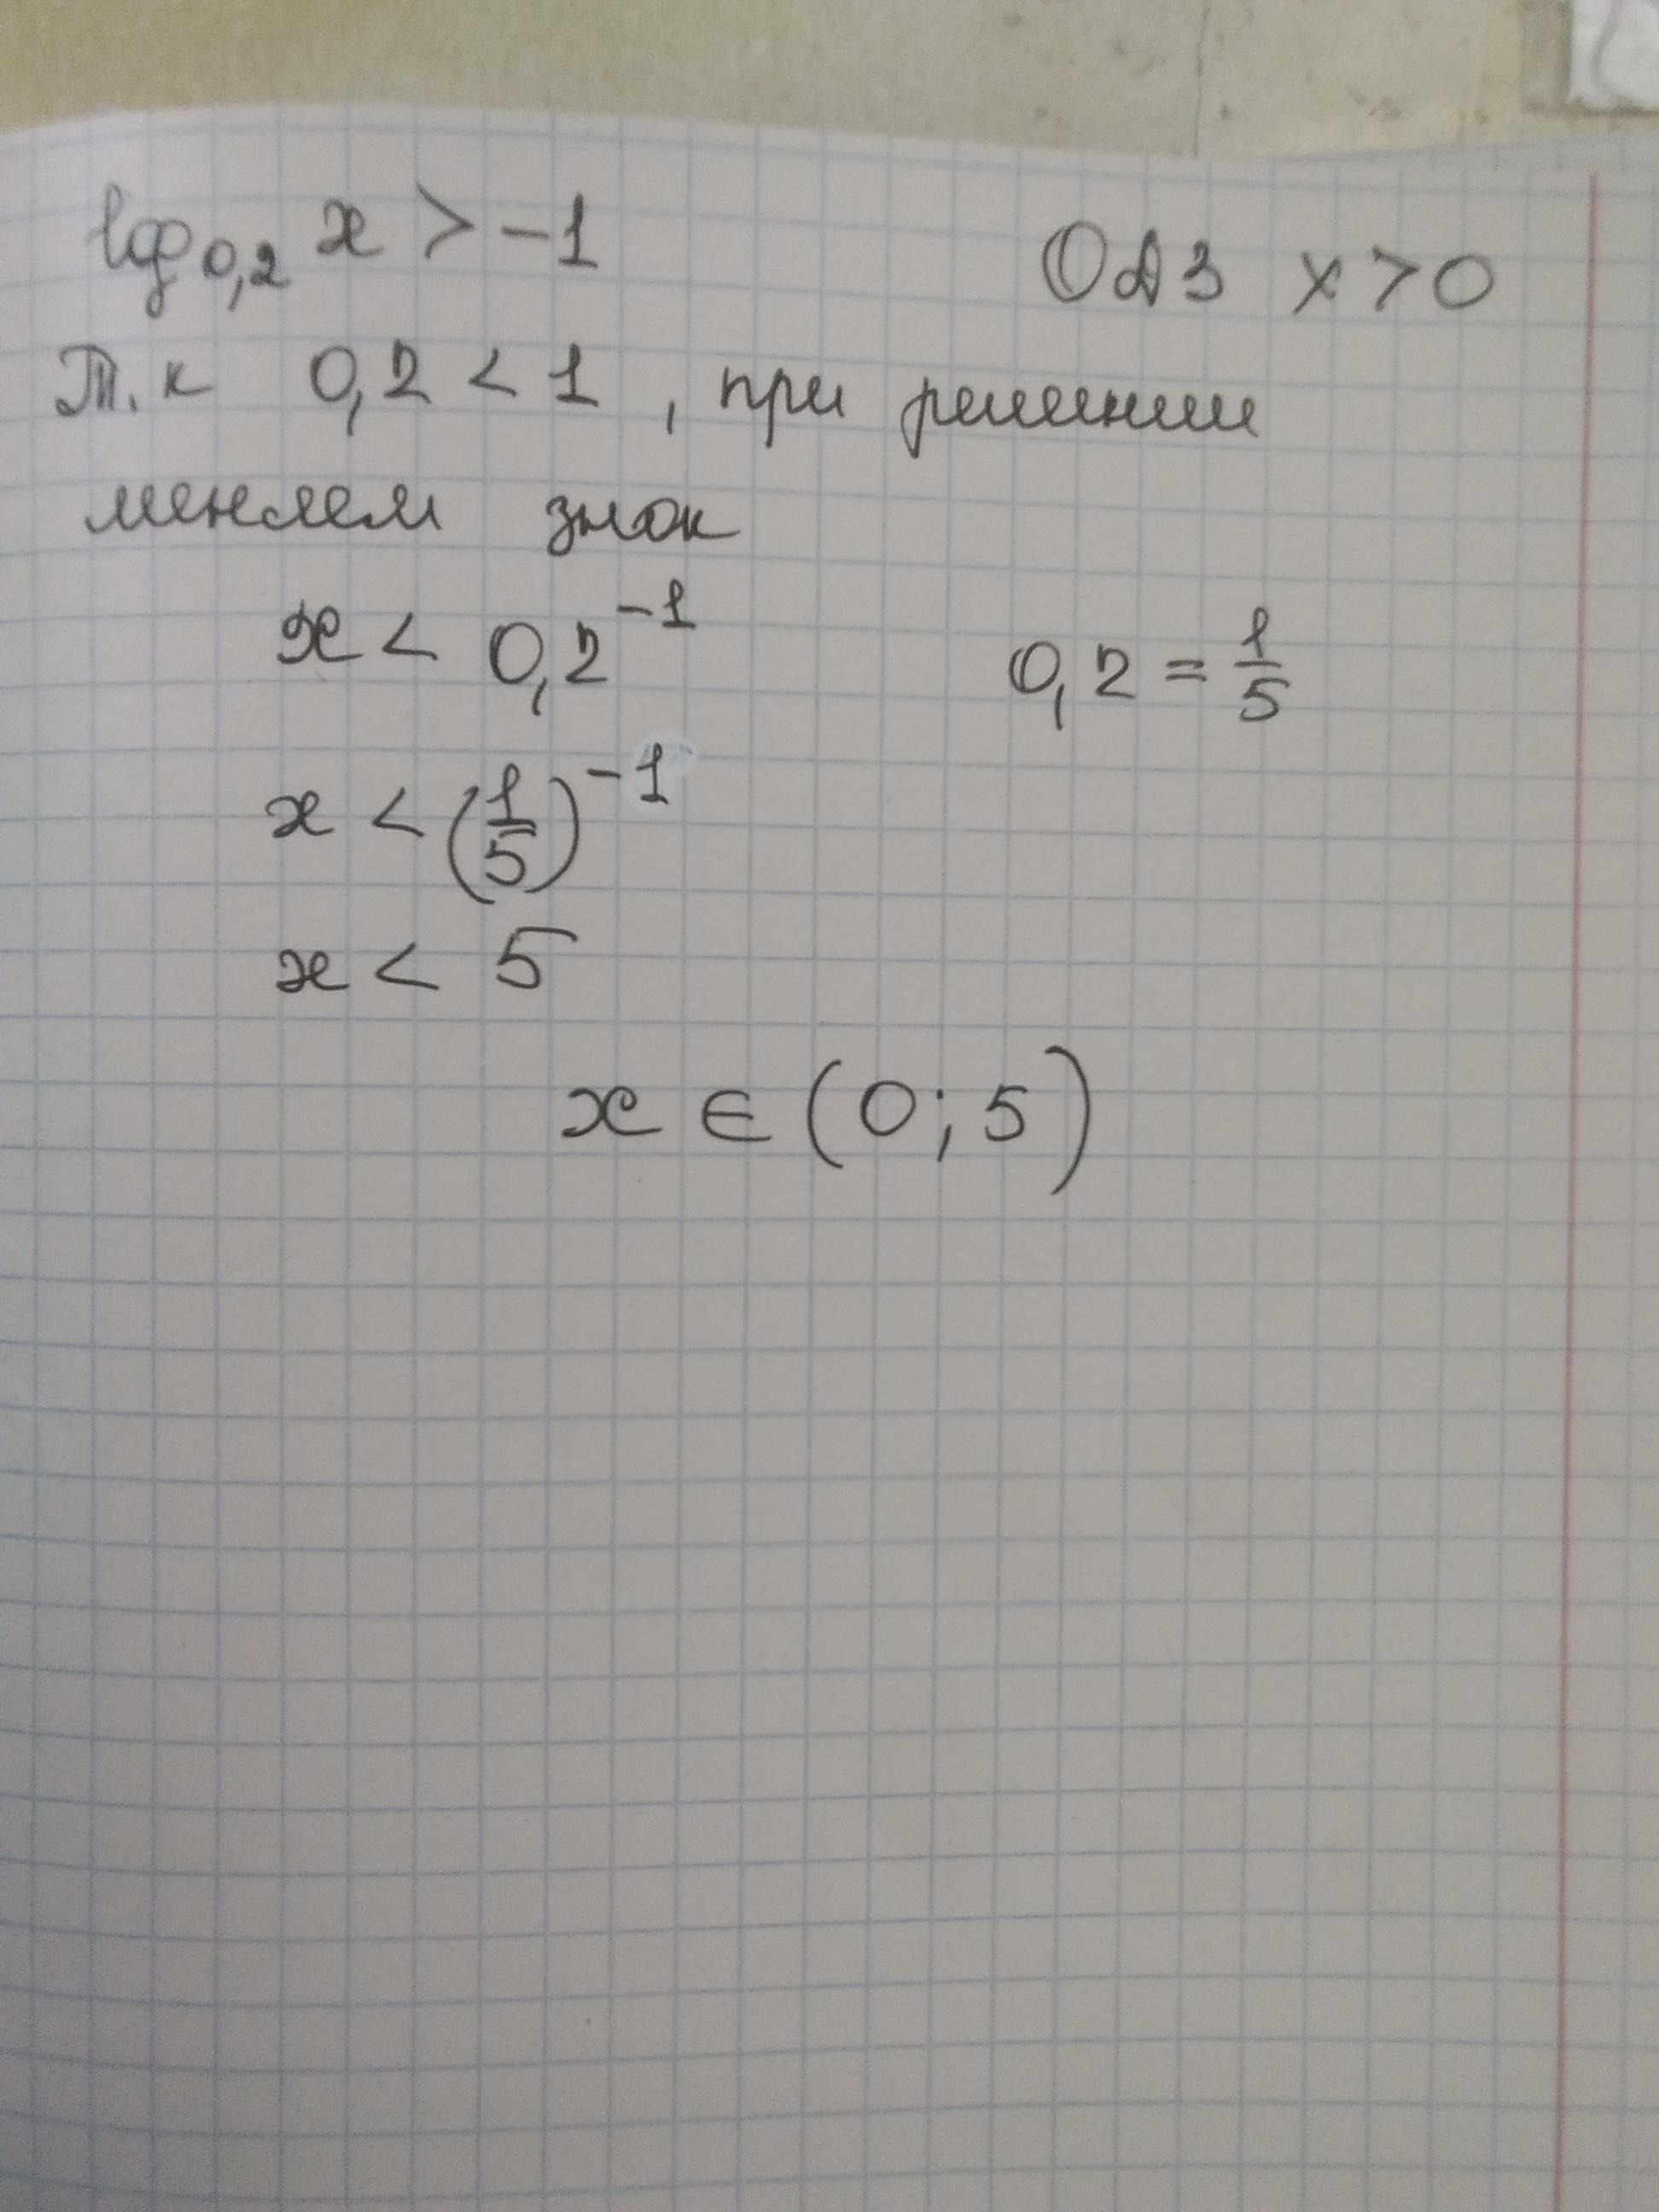 log₀,₂ x > -1 ОДЗ x > 0
Т.к 0,2 < 1, при решении
меняем знак
x < 0,2⁻¹ 0,2 = 1/5
x < (1/5)⁻¹
x < 5
x ∈ (0; 5)